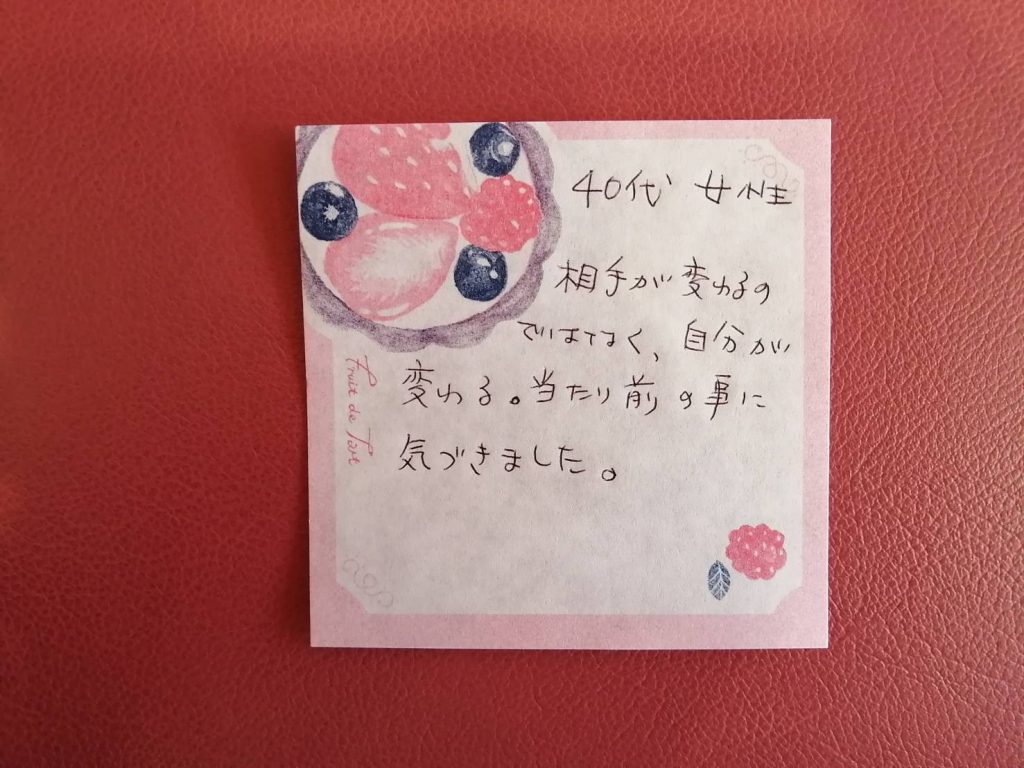 40代 女性
相手が変わるの
ではなく、自分が
変わる。当たり前の事に
気づきました。
Fruit de Tart